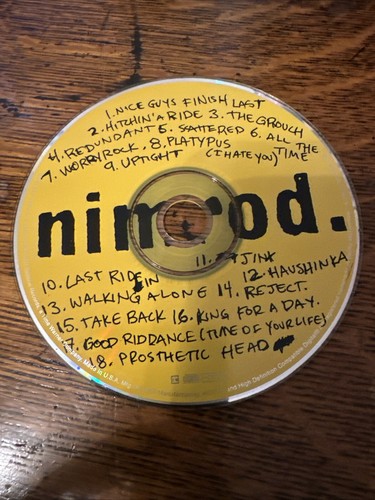 1. NICE GUYS FINISH LAST
2. HITCHIN' A RIDE 3. THE GROUCH
4. REDUNDANT 5. SCATTERED 6. ALL THE TIME
7. WORRY ROCK. 8. PLATYPUS (I HATE YOU)
9. UPTIGHT
nimrod.
10. LAST RIDE IN 11. JINX 12. HAUSHINKA
13. WALKING ALONE 14. REJECT.
15. TAKE BACK 16. KING FOR A DAY.
17. GOOD RIDDANCE (TIME OF YOUR LIFE)
18. PROSTHETIC HEAD